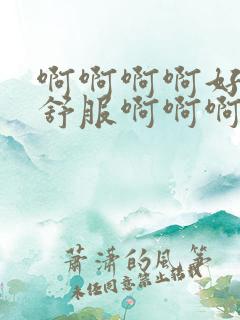 啊啊啊啊好
舒服啊啊啊
萧潇的风筝
未经同意禁止转载